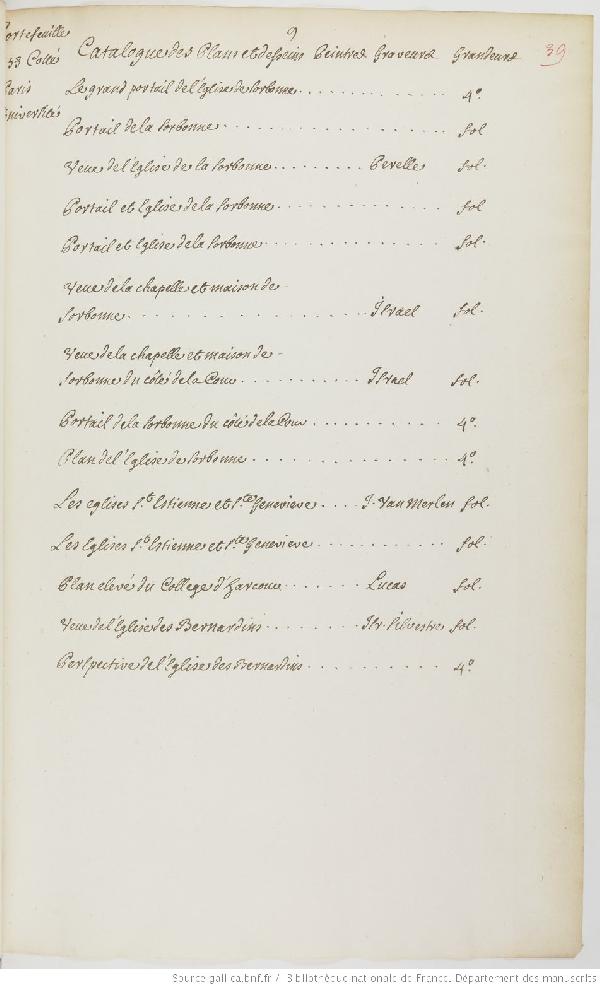 9
Portefeuille
53 Cotté
Paris
Université
Catalogue des Plans et desseins Peintres Graveurs Grandeurs 39
Le grand portail de l'Eglise de Sorbonne . . . . . . . . . . . . . . 4°.
Portail de la Sorbonne . . . . . . . . . . . . . . . . . . . . fol
Veue de l'Eglise de la Sorbonne . . . . . . . . . Perelle fol.
Portail et Eglise de la Sorbonne . . . . . . . . . . . . . . . fol
Portail et Eglise de la Sorbonne . . . . . . . . . . . . . . . fol.
Veue de la chapelle et maison de
Sorbonne . . . . . . . . . . . . . . . . . . . Israel fol.
Veue de la chapelle et maison de
Sorbonne du côté de la Cour . . . . . . . . . . . Israel fol.
Portail de la Sorbonne du côté de la Cour . . . . . . . . . . . . 4°.
Plan de l'Eglise de Sorbonne . . . . . . . . . . . . . . . . 4°.
Les eglises St. Estienne et Ste. Genevieve . . . . J. Van Merlen fol.
Les Eglises St. Estienne et Ste. Genevieve . . . . . . . . . . . . fol.
Plan elevé du College d'Harcour . . . . . . . Lucas fol.
Veue de l'Eglise des Bernardins . . . . . . . . . Isr. Silvestre fol.
Perspective de l'Eglise des Bernardins . . . . . . . . . . . . 4°
Source gallica.bnf.fr / Bibliothèque nationale de France. Département des manuscrits